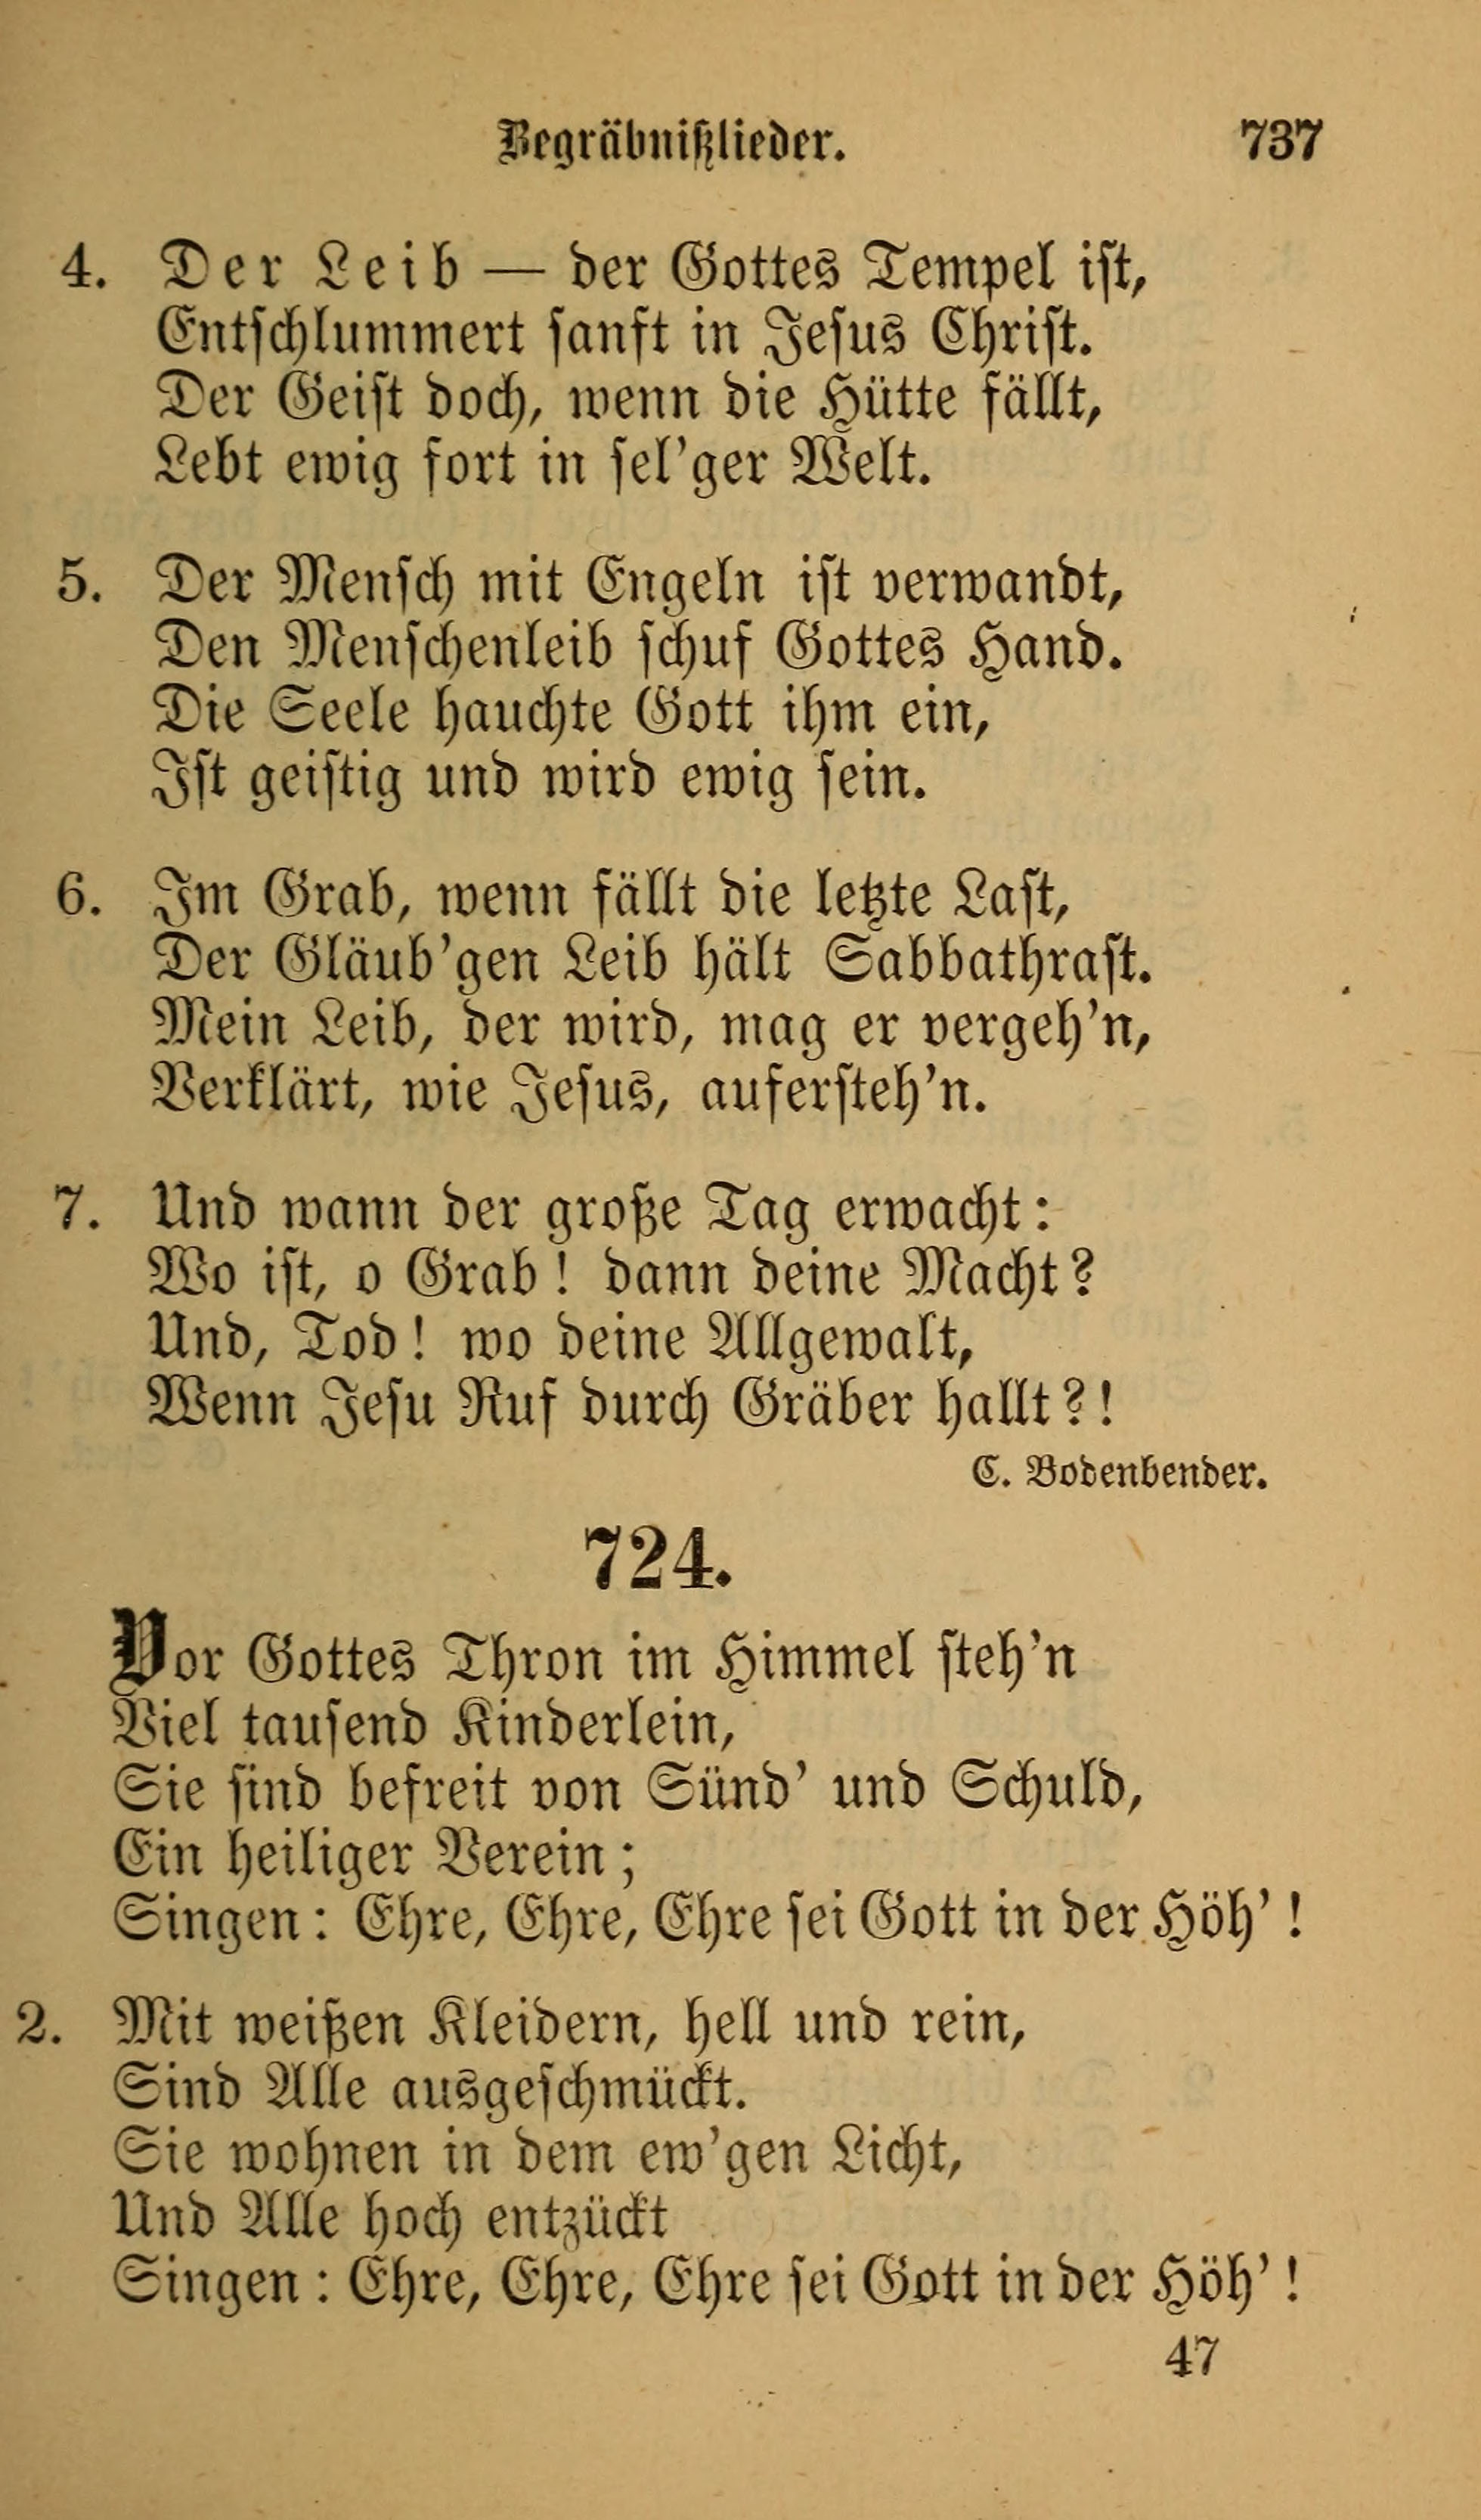 Begräbnißlieder. 737
4. Der Leib — der Gottes Tempel ist,
Entschlummert sanft in Jesus Christ.
Der Geist doch, wenn die Hütte fällt,
Lebt ewig fort in sel'ger Welt.
5. Der Mensch mit Engeln ist verwandt,
Den Menschenleib schuf Gottes Hand.
Die Seele hauchte Gott ihm ein,
Ist geistig und wird ewig sein.
6. Im Grab, wenn fällt die letzte Last,
Der Gläub'gen Leib hält Sabbathrast.
Mein Leib, der wird, mag er vergeh'n,
Verklärt, wie Jesus, aufersteh'n.
7. Und wann der große Tag erwacht:
Wo ist, o Grab! dann deine Macht?
Und, Tod! wo deine Allgewalt,
Wenn Jesu Ruf durch Gräber hallt?!
C. Bodenbender.
724.
Vor Gottes Thron im Himmel steh'n
Viel tausend Kinderlein,
Sie sind befreit von Sünd' und Schuld,
Ein heiliger Verein;
Singen: Ehre, Ehre, Ehre sei Gott in der Höh'!
2. Mit weißen Kleidern, hell und rein,
Sind Alle ausgeschmückt.
Sie wohnen in dem ew'gen Licht,
Und Alle hoch entzückt
Singen: Ehre, Ehre, Ehre sei Gott in der Höh'!
47